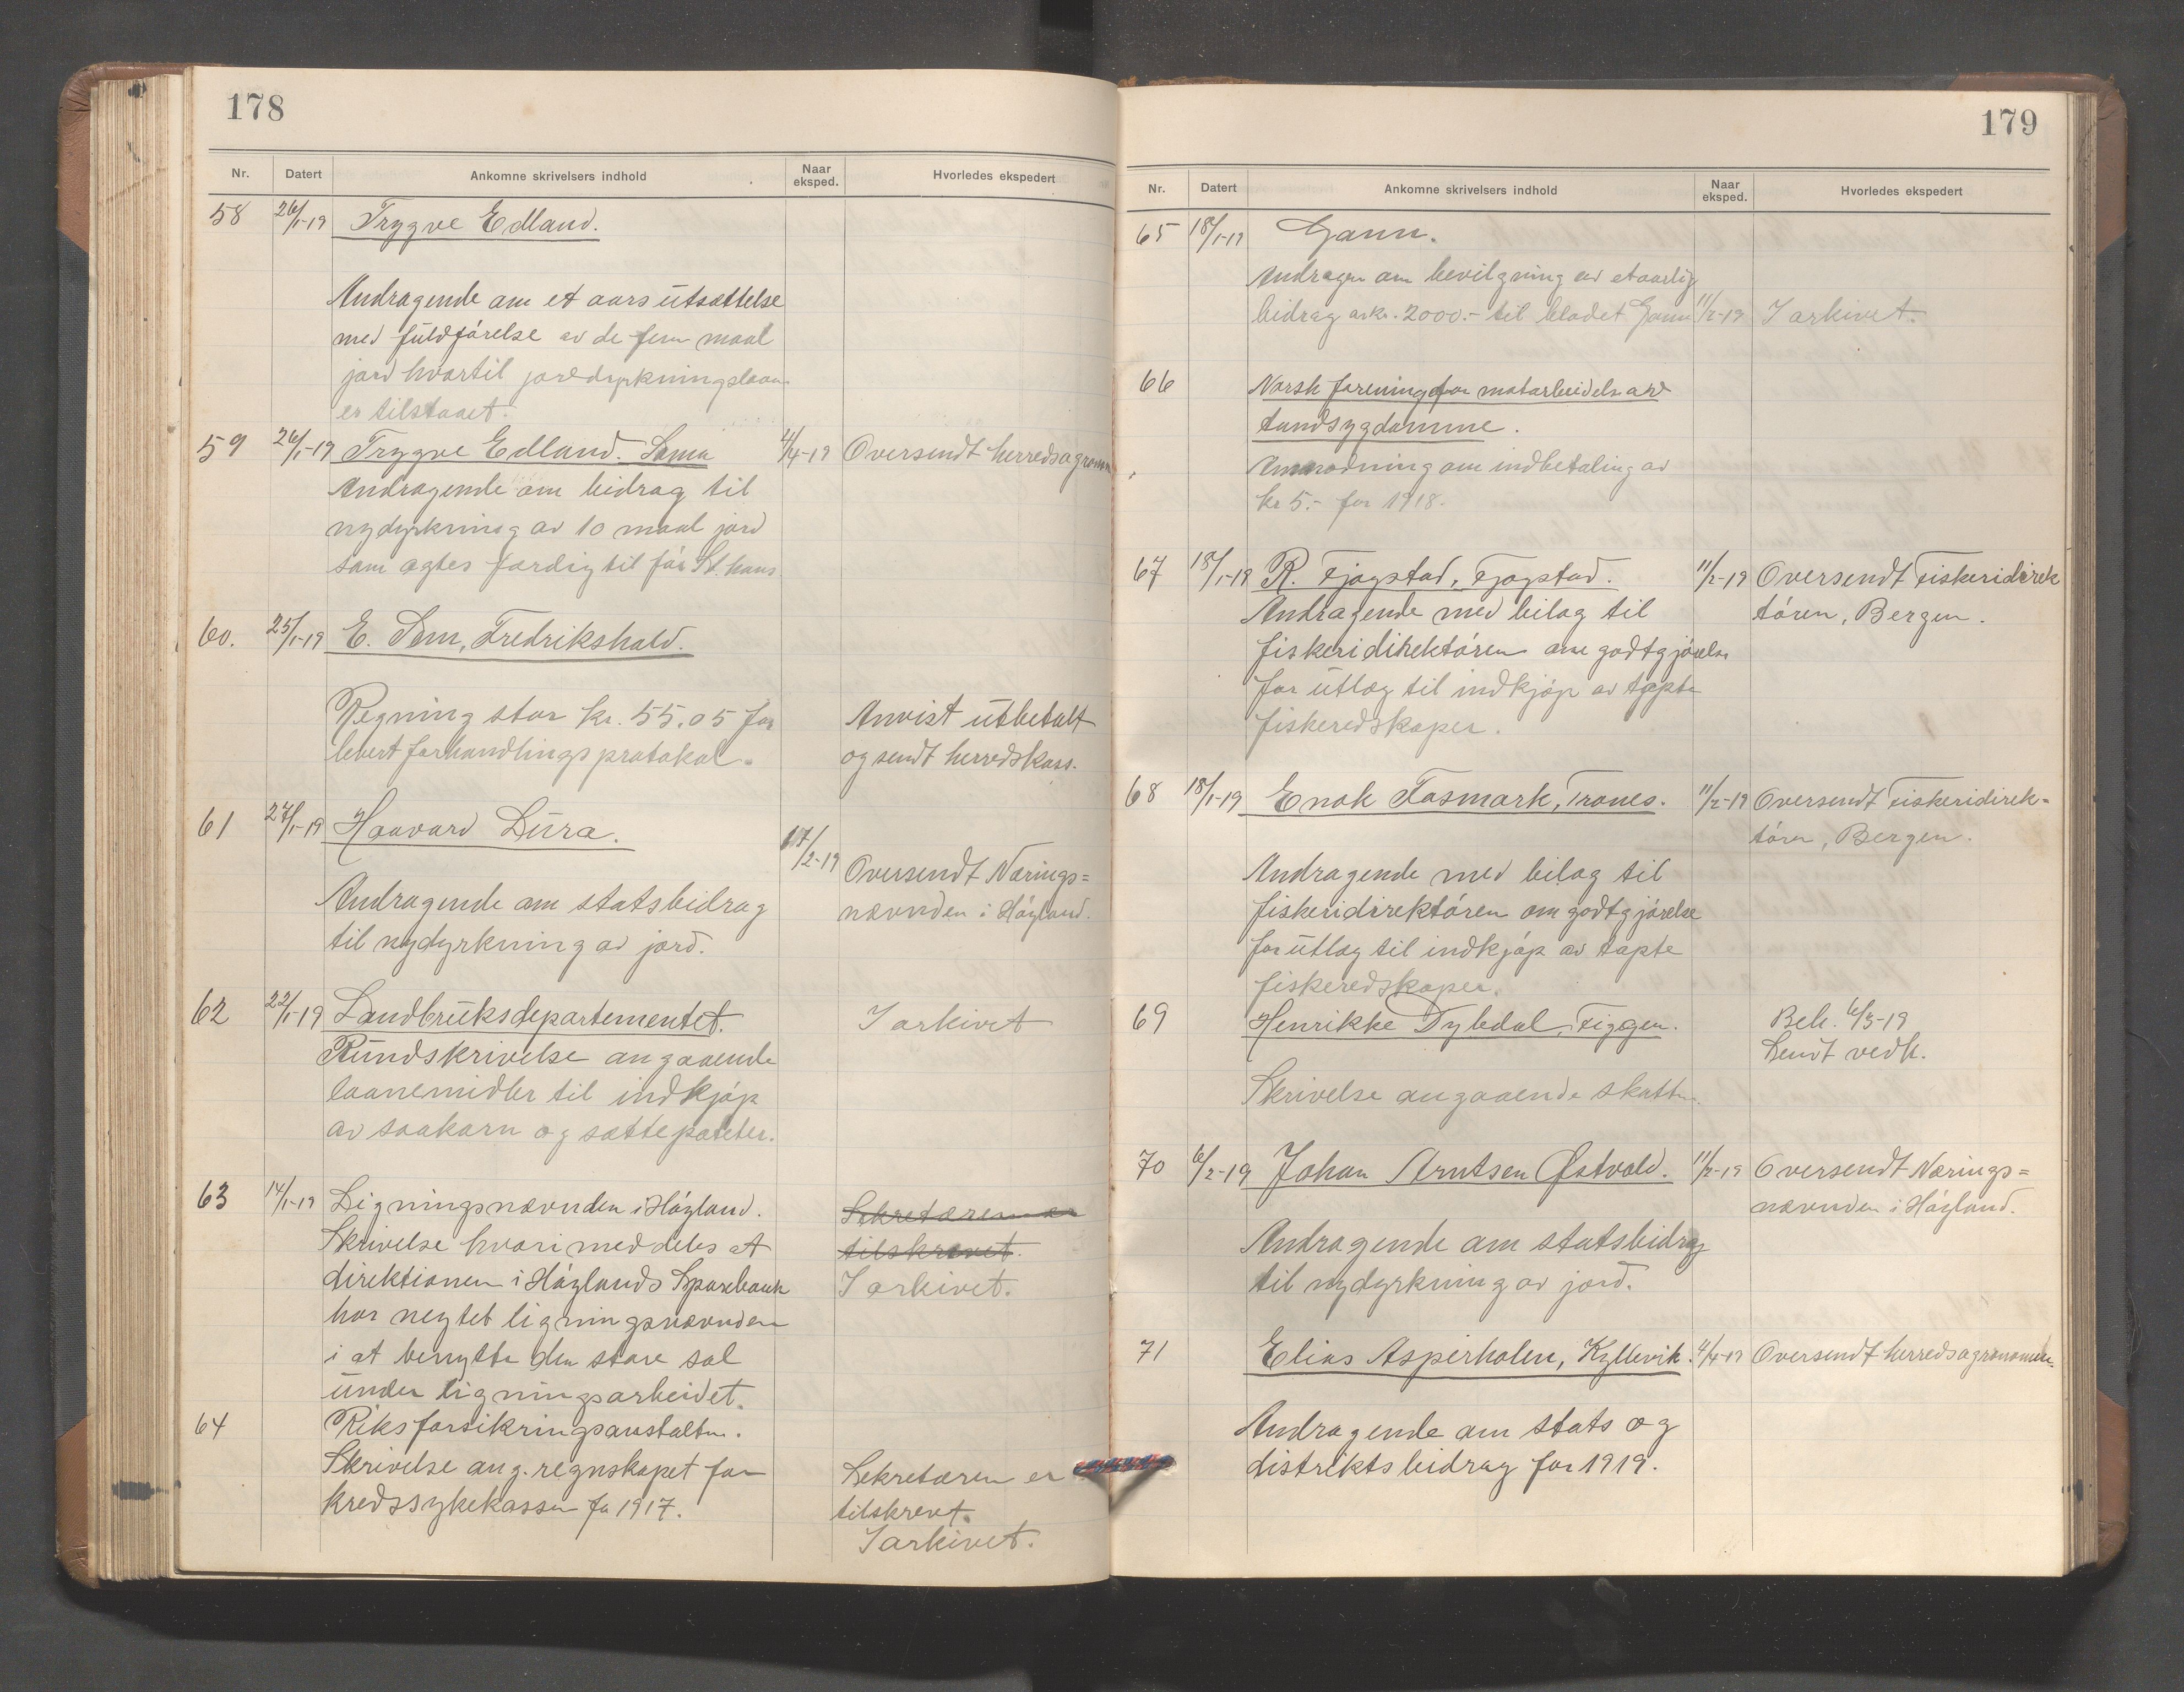 178
Nr. Datert Ankomne skrivelsers indhold Naar eksped. Hvorledes ekspedert
58 26/1-19 Trygve Edland.
Andragende om et aars utsættelse
med fuldførelse av de fem maal
jord hvortil jorddyrkningslaan
er tilstaaet.
59 26/1-19 Trygve Edland. Soma 4/4-19 Oversendt herredsagronom
Andragende om bidrag til
nydyrkning av 10 maal jord
som agtes færdig til før St. hans
60. 25/1-19 E. Sem, Fredrikshald.
Regning stor kr. 55.05 for Anvist utbetalt
levert forhandlingsprotokol. og sendt herredskass.
61 27/1-19 Haavard Lura. 17/2-19
Oversendt Nærings=
Andragende om statsbidrag nævnden i Høyland.
til nydyrkning av jord.
62 22/1-19 Landbruksdepartementet. I arkivet
Rundskrivelse angaaende
laanemidler til indkjøp
av saakorn og sættepoteter.
63 14/1-19 Ligningsnævnden i Høyland. Sekretæren er
Skrivelse hvori meddeles at tilskrevet.
direktionen i Høylands Sparebank I arkivet.
har negtet ligningsnævnden
i at benytte den store sal
under ligningsarbeidet.
64 Riksforsikringsanstalten.
Skrivelse ang. regnskapet for Sekretæren er
kredssykekassen for 1917. tilskrevt.
I arkivet.
179
Nr. Datert Ankomne skrivelsers indhold Naar eksped. Hvorledes ekspedert
65 18/1-19 Gann.
Andragen om bevilgning av et aarlig
bidrag av kr. 2000.- til bladet Gann 11/2-19 I arkivet.
66 Norsk forening for motarbeidelse av
tandsygdomme.
Anmodning om indbetaling av
kr 5.- for 1918.
67 18/1-19 R. Fjogstad, Fjogstad. 11/2-19 Oversendt Fiskeridirek
Andragende med bilag til tøren, Bergen.
fiskeridirektøren om godtgjørelse
for utlæg til indkjøp av tapte
fiskeredskaper.
68 18/1-19 Enok Fosmark, Trones. 11/2-19 Oversendt Fiskeridirek-
tøren, Bergen.
Andragende med bilag til
fiskeridirektøren om godtgjørelse
for utlæg til indkjøp av tapte
fiskeredskaper.
69 Henrikke Dybdal, Figgen. Beh. 6/3-19
Sendt vedk.
Skrivelse angaaende skatten.
70 6/2-19 Johan Arntsen Østvold. 11/2-19 Oversendt Nærings=
nævnden i Høyland.
Andragende om statsbidrag
til nydyrkning av jord.
71 Elias Asperholen, Kyllevik. 4/4-19 Oversendt herredsagronomen.
Andragende om stats og
distriktsbidrag for 1919.